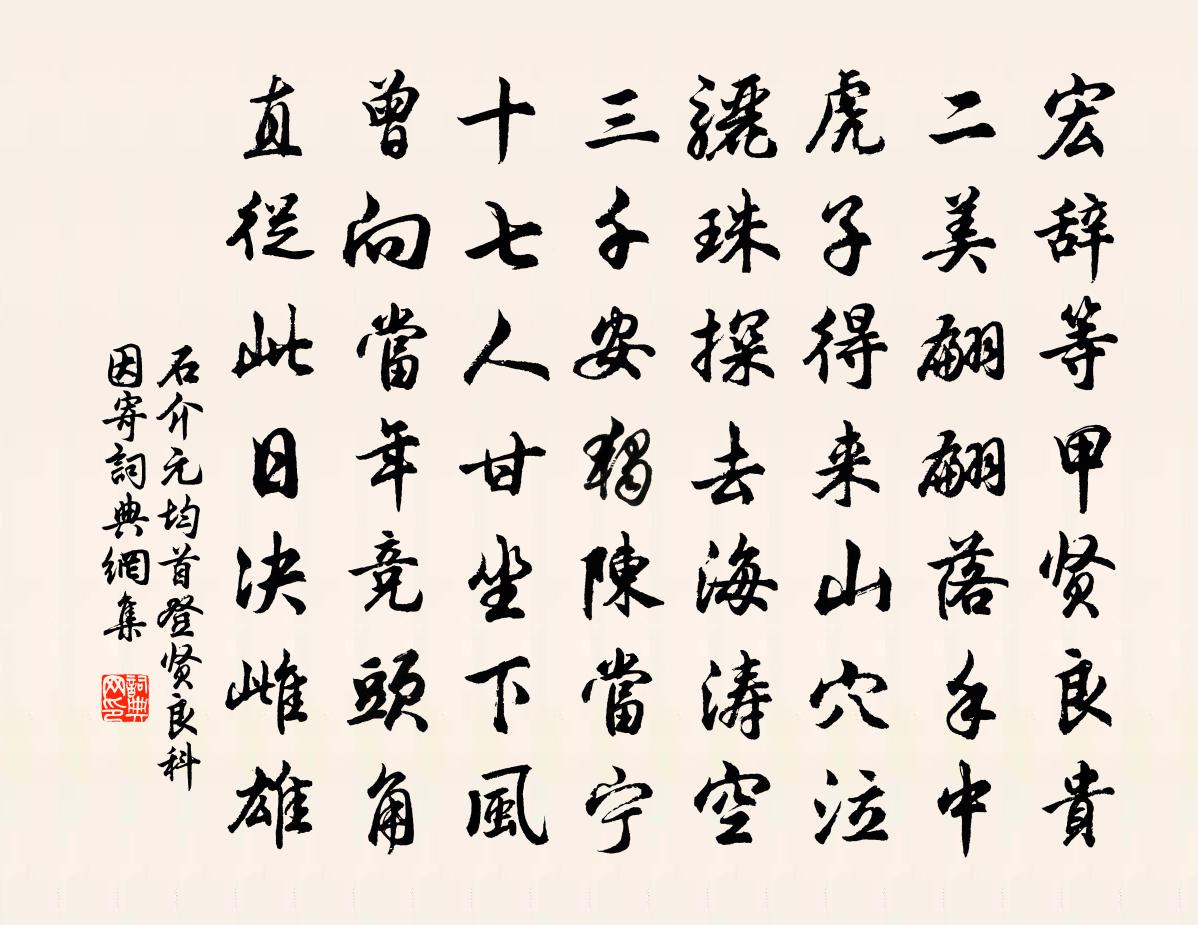 宏辞等甲贤良貴
二美翩翩落手中
虎子得来山穴泣
骊珠探去海涛空
三千安独陳當宁
十七人甘坐下風
曾向當年竞頭角
直從此日决雌雄
石介元均首登贤良科
因寄詞典網集
詞典网印